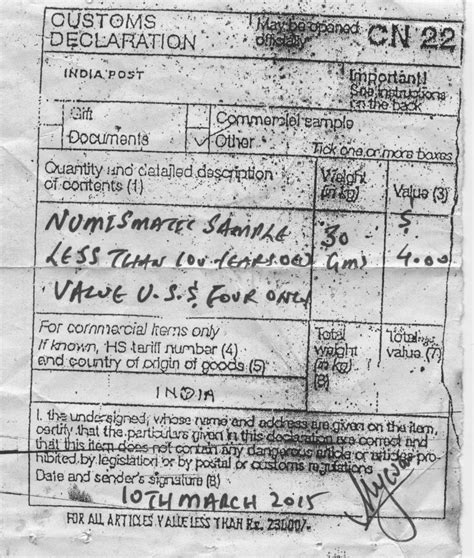 CUSTOMS DECLARATION
May be opened officially
CN 22
INDIA POST
Important!
See instructions on the back
Gift
Commercial sample
Documents
✓ Other
Tick one or more boxes
Quantity and detailed description of contents (1)
Weight (in kg)
Value (3)
NUMISMATIC SAMPLE
30
$
LESS THAN 100 YEARS OLD
GMS
4.00
VALUE U.S.$ FOUR ONLY
For commercial items only
If known, HS tariff number (4)
and country of origin of goods (5)
Total weight (in kg) (6)
Total value (7)
INDIA
I, the undersigned, whose name and address are given on the item,
certify that the particulars given in this declaration are correct and
that this item does not contain any dangerous article or articles pro-
hibited by legislation or by postal or customs regulations
Date and sender's signature (8)
10TH MARCH 2015
FOR ALL ARTICLES VALUE LESS THAN Rs. 23000/-